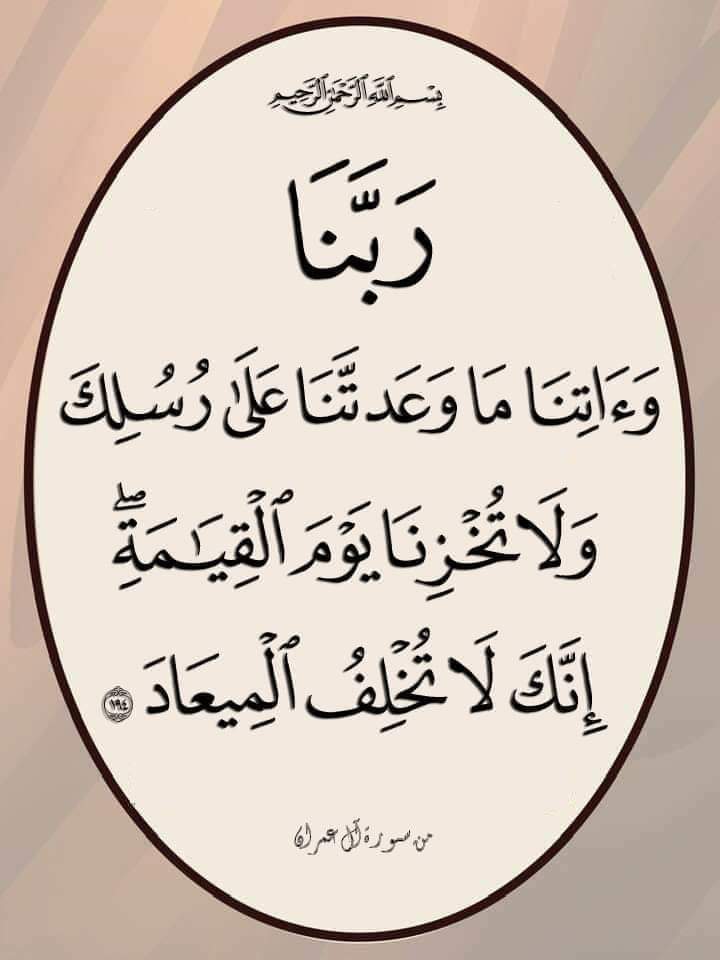 بِسْمِ ٱللَّهِ ٱلرَّحْمَٰنِ ٱلرَّحِيمِ
رَبَّنَا
وَءَاتِنَا مَا وَعَدتَّنَا عَلَىٰ رُسُلِكَ
وَلَا تُخْزِنَا يَوْمَ ٱلْقِيَٰمَةِۖ
إِنَّكَ لَا تُخْلِفُ ٱلْمِيعَادَ ١٩٤
من سورة آل عمران